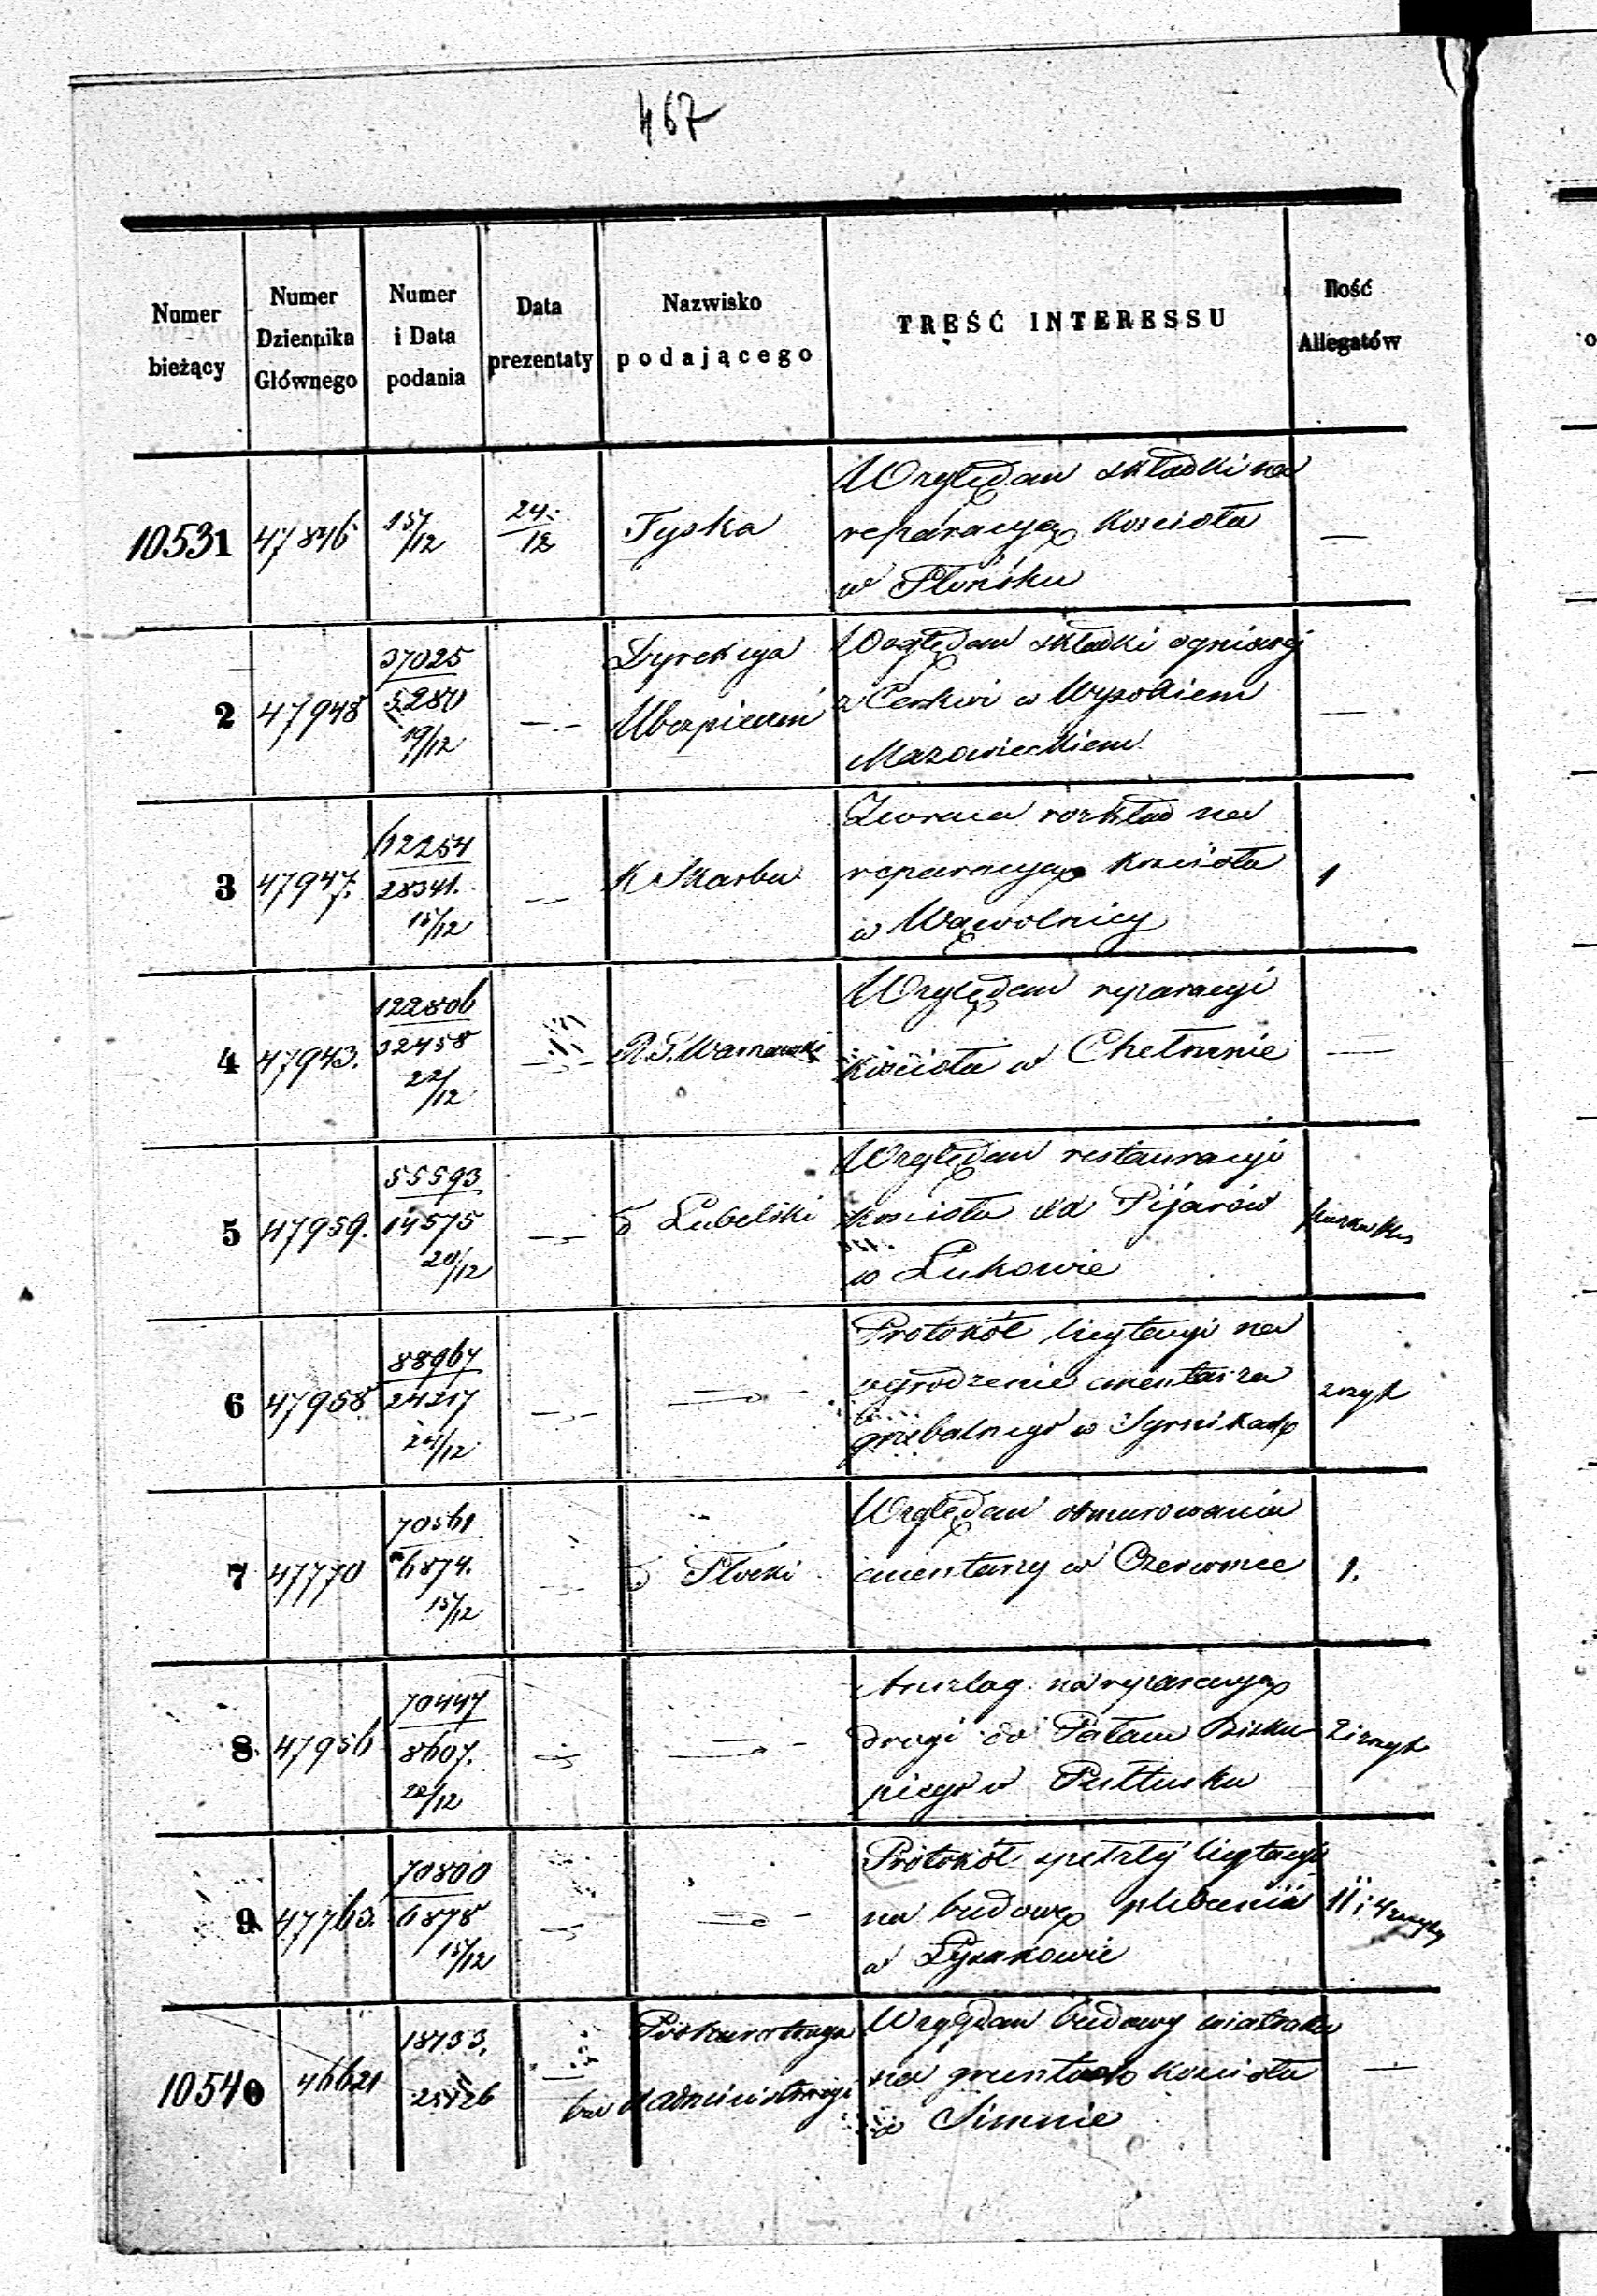 467
Numer bieżący
Numer Dziennika Głównego
Numer i Data podania
Data prezentaty
Nazwisko podającego
TREŚĆ INTERESSU
Ilość Allegatów
10531 47846 15/12 24/12 Tyska
Względem składki na
reparacyą Kościoła
w Płońsku
—
2 47948 37025
5280
19/12
Dyrekcya
Ubezpieczeń
Względem składki ogniowej
z Cerkwi w Wysokiem
Mazowieckiem
—
3 47947. 62254
28341.
15/12
K Skarbu
Zwraca rozkład na
reparacyą kościoła
w Wąwolnicy
1
4 47943. 122806
32458
22/12
R. G. Warszawski
Względem reparacyi
kościoła w
—
5 47959. 55593
14575
20/12
Lubelski
Względem restauracyi
kościoła XX Pijarów
w Łukowie
6 47958 88967
24217
/12
Protokół licytacyi na
ogrodzenie cmentarza
grzebalnego w Syrnikach
zszyt
7 47770 70561
6874.
15/12
Płocki
Względem obmurowania
cmentarzy w Czerwonce
1.
8. 47956 70447
8607.
/12
Anszlag na reparacyą
drogi do Pałacu Bisku-
piego w Pułtusku
2 i zszyt
9. 47763. 70800
6878
15/12
Protokół spełzłej licytacyi
na budowę plebanii
w Łysakowie
11 i 4 zszyty
10540 46621 18133.
Prokuratorya
Względem budowy wiatraka
na gruntach kościoła
w Simnie
—